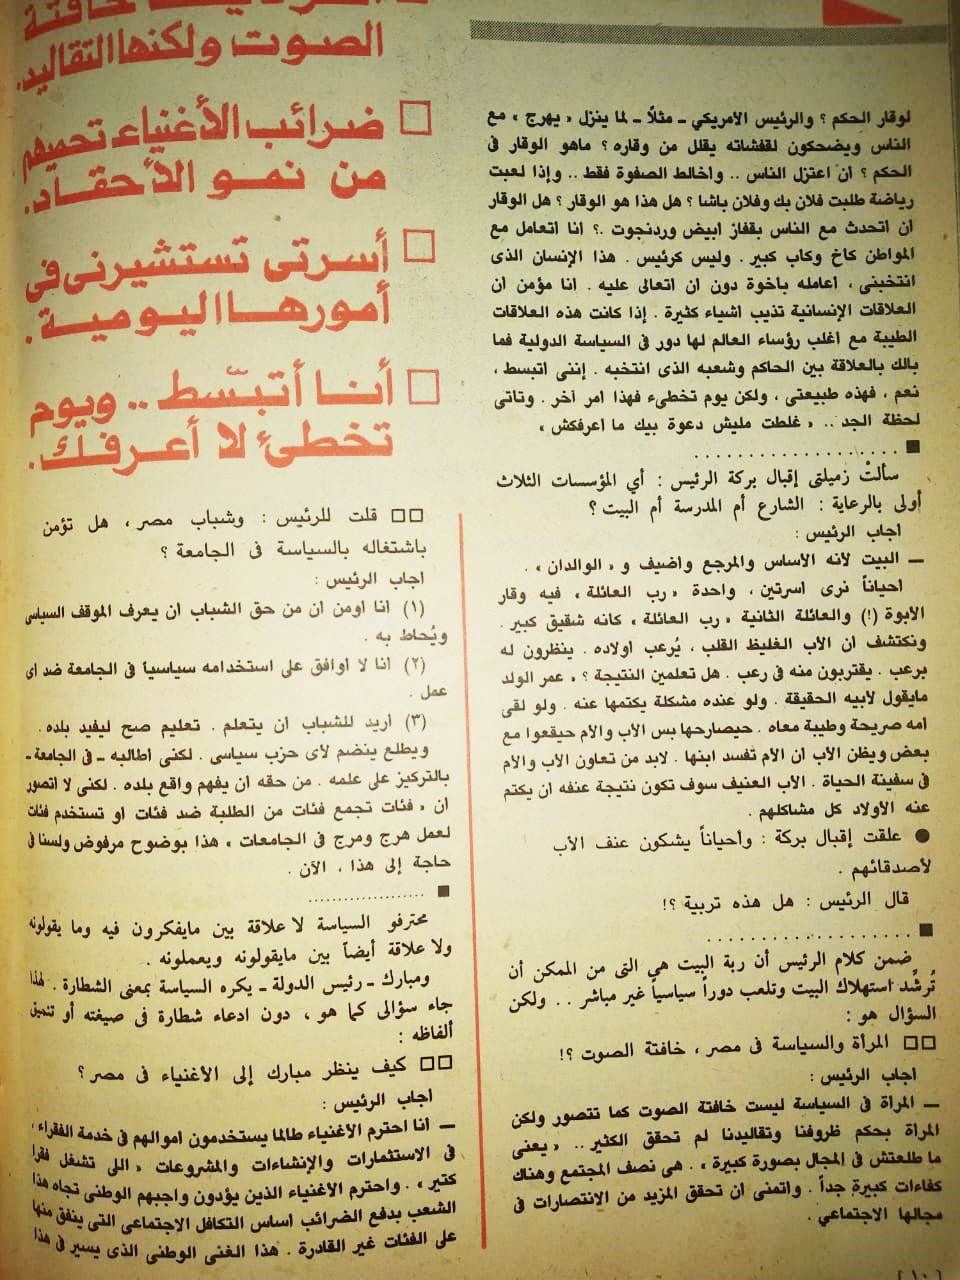 لوقار الحكم ؟ والرئيس الامريكي ـ مثلاً ـ لما ينزل « يهرج » مع
الناس ويضحكون لقفشاته يقلل من وقاره ؟ ماهو الوقار في
الحكم ؟ ان اعتزل الناس .. واخالط الصفوة فقط .. وإذا لعبت
رياضة طلبت فلان بك وفلان باشا ؟ هل هذا هو الوقار ؟ هل الوقار
ان اتحدث مع الناس بقفاز ابيض وردنجوت .؟ انا اتعامل مع
المواطن كاخ وكاب كبير . وليس كرئيس . هذا الإنسان الذى
انتخبنى ، اعامله باخوة دون ان اتعالى عليه . انا مؤمن ان
العلاقات الإنسانية تذيب اشياء كثيرة . إذا كانت هذه العلاقات
الطيبة مع اغلب رؤساء العالم لها دور فى السياسة الدولية فما
بالك بالعلاقة بين الحاكم وشعبه الذى انتخبه . إننى اتبسط ،
نعم ، فهذه طبيعتى ، ولكن يوم تخطىء فهذا امر آخر . وتاتى
لحظة الجد .. « غلطت مليش دعوة بيك ما اعرفكش »
■ ..................
سألتْ زميلتى إقبال بركة الرئيس : أي المؤسسات الثلاث
أولى بالرعاية : الشارع أم المدرسة أم البيت ؟
اجاب الرئيس :
ـ البيت لانه الاساس والمرجع واضيف و « الوالدان » .
احياناً نرى اسرتين ، واحدة « رب العائلة » فيه وقار
الابوة (!) والعائلة الثانية « رب العائلة » كانه شقيق كبير .
ونكتشف ان الاب الغليظ القلب ، يُرعب اولاده . ينظرون له
برعب . يقتربون منه فى رعب . هل تعلمين النتيجة ؟ « عمر الولد
مايقول لابيه الحقيقة . ولو عنده مشكلة يكتمها عنه . ولو لقى
امه صريحة وطيبة معاه . حيصارحها بس الاب والام حيقعوا مع
بعض ويظن الاب ان الام تفسد ابنها . لابد من تعاون الاب والام
فى سفينة الحياة . الاب العنيف سوف تكون نتيجة عنفه ان يكتم
عنه الاولاد كل مشاكلهم .
● علقت إقبال بركة : وأحياناً يشكون عنف الأب
لأصدقائهم .
قال الرئيس : هل هذه تربية ؟!
■ ..................
ضمن كلام الرئيس أن ربة البيت هي التى من الممكن أن
تُرشِّد استهلاك البيت وتلعب دوراً سياسياً غير مباشر .. ولكن
السؤال هو :
□□ المرأة والسياسة فى مصر ، خافتة الصوت ؟!
اجاب الرئيس :
ـ المراة فى السياسة ليست خافتة الصوت كما تتصور ولكن
المراة بحكم ظروفنا وتقاليدنا لم تحقق الكثير .. « يعنى
ما طلعتش فى المجال بصورة كبيرة » . هى نصف المجتمع وهناك
كفاءات كبيرة جداً . واتمنى ان تحقق المزيد من الانتصارات فى
مجالها الاجتماعي .
[ ١٠ ]
خافتة
الصوت ولكنها التقاليد.
□ ضرائب الأغنياء تحميهم
من نمو الأحقاد.
□ أسرتى تستشيرنى فى
أمورها اليومية.
□ أنا أتبسّط .. ويوم
تخطئ لا أعرفك.
□□ قلت للرئيس : وشباب مصر ، هل تؤمن
باشتغاله بالسياسة فى الجامعة ؟
اجاب الرئيس :
(١) انا اومن ان من حق الشباب ان يعرف الموقف السياسى
ويُحاط به .
(٢) انا لا اوافق على استخدامه سياسياً فى الجامعة ضد اى
عمل .
(٣) اريد للشباب ان يتعلم . تعليم صح ليفيد بلده .
ويطلع ينضم لاى حزب سياسى . لكنى اطالبه ـ فى الجامعة ـ
بالتركيز على علمه . من حقه ان يفهم واقع بلده . لكنى لا اتصور
ان « فئات تجمع فئات من الطلبة ضد فئات او تستخدم فئات
لعمل هرج ومرج فى الجامعات » هذا بوضوح مرفوض ولسنا فى
حاجة إلى هذا ، الآن .
■ ..................
محترفو السياسة لا علاقة بين مايفكرون فيه وما يقولونه
ولا علاقة أيضاً بين مايقولونه ويعملونه .
ومبارك ـ رئيس الدولة ـ يكره السياسة بمعنى الشطارة . لهذا
جاء سؤالى كما هو ، دون ادعاء شطارة فى صيغته أو تنميق
ألفاظه :
□□ كيف ينظر مبارك إلى الأغنياء فى مصر ؟
اجاب الرئيس :
ـ انا احترم الاغنياء طالما يستخدمون اموالهم فى خدمة الفقراء ،
فى الاستثمارات والإنشاءات والمشروعات « اللى تشغل فقرا
كتير » . واحترم الاغنياء الذين يؤدون واجبهم الوطنى تجاه هذا
الشعب بدفع الضرائب اساس التكافل الاجتماعى التى ينفق منها
على الفئات غير القادرة . هذا الغنى الوطنى الذى يسير فى هذا